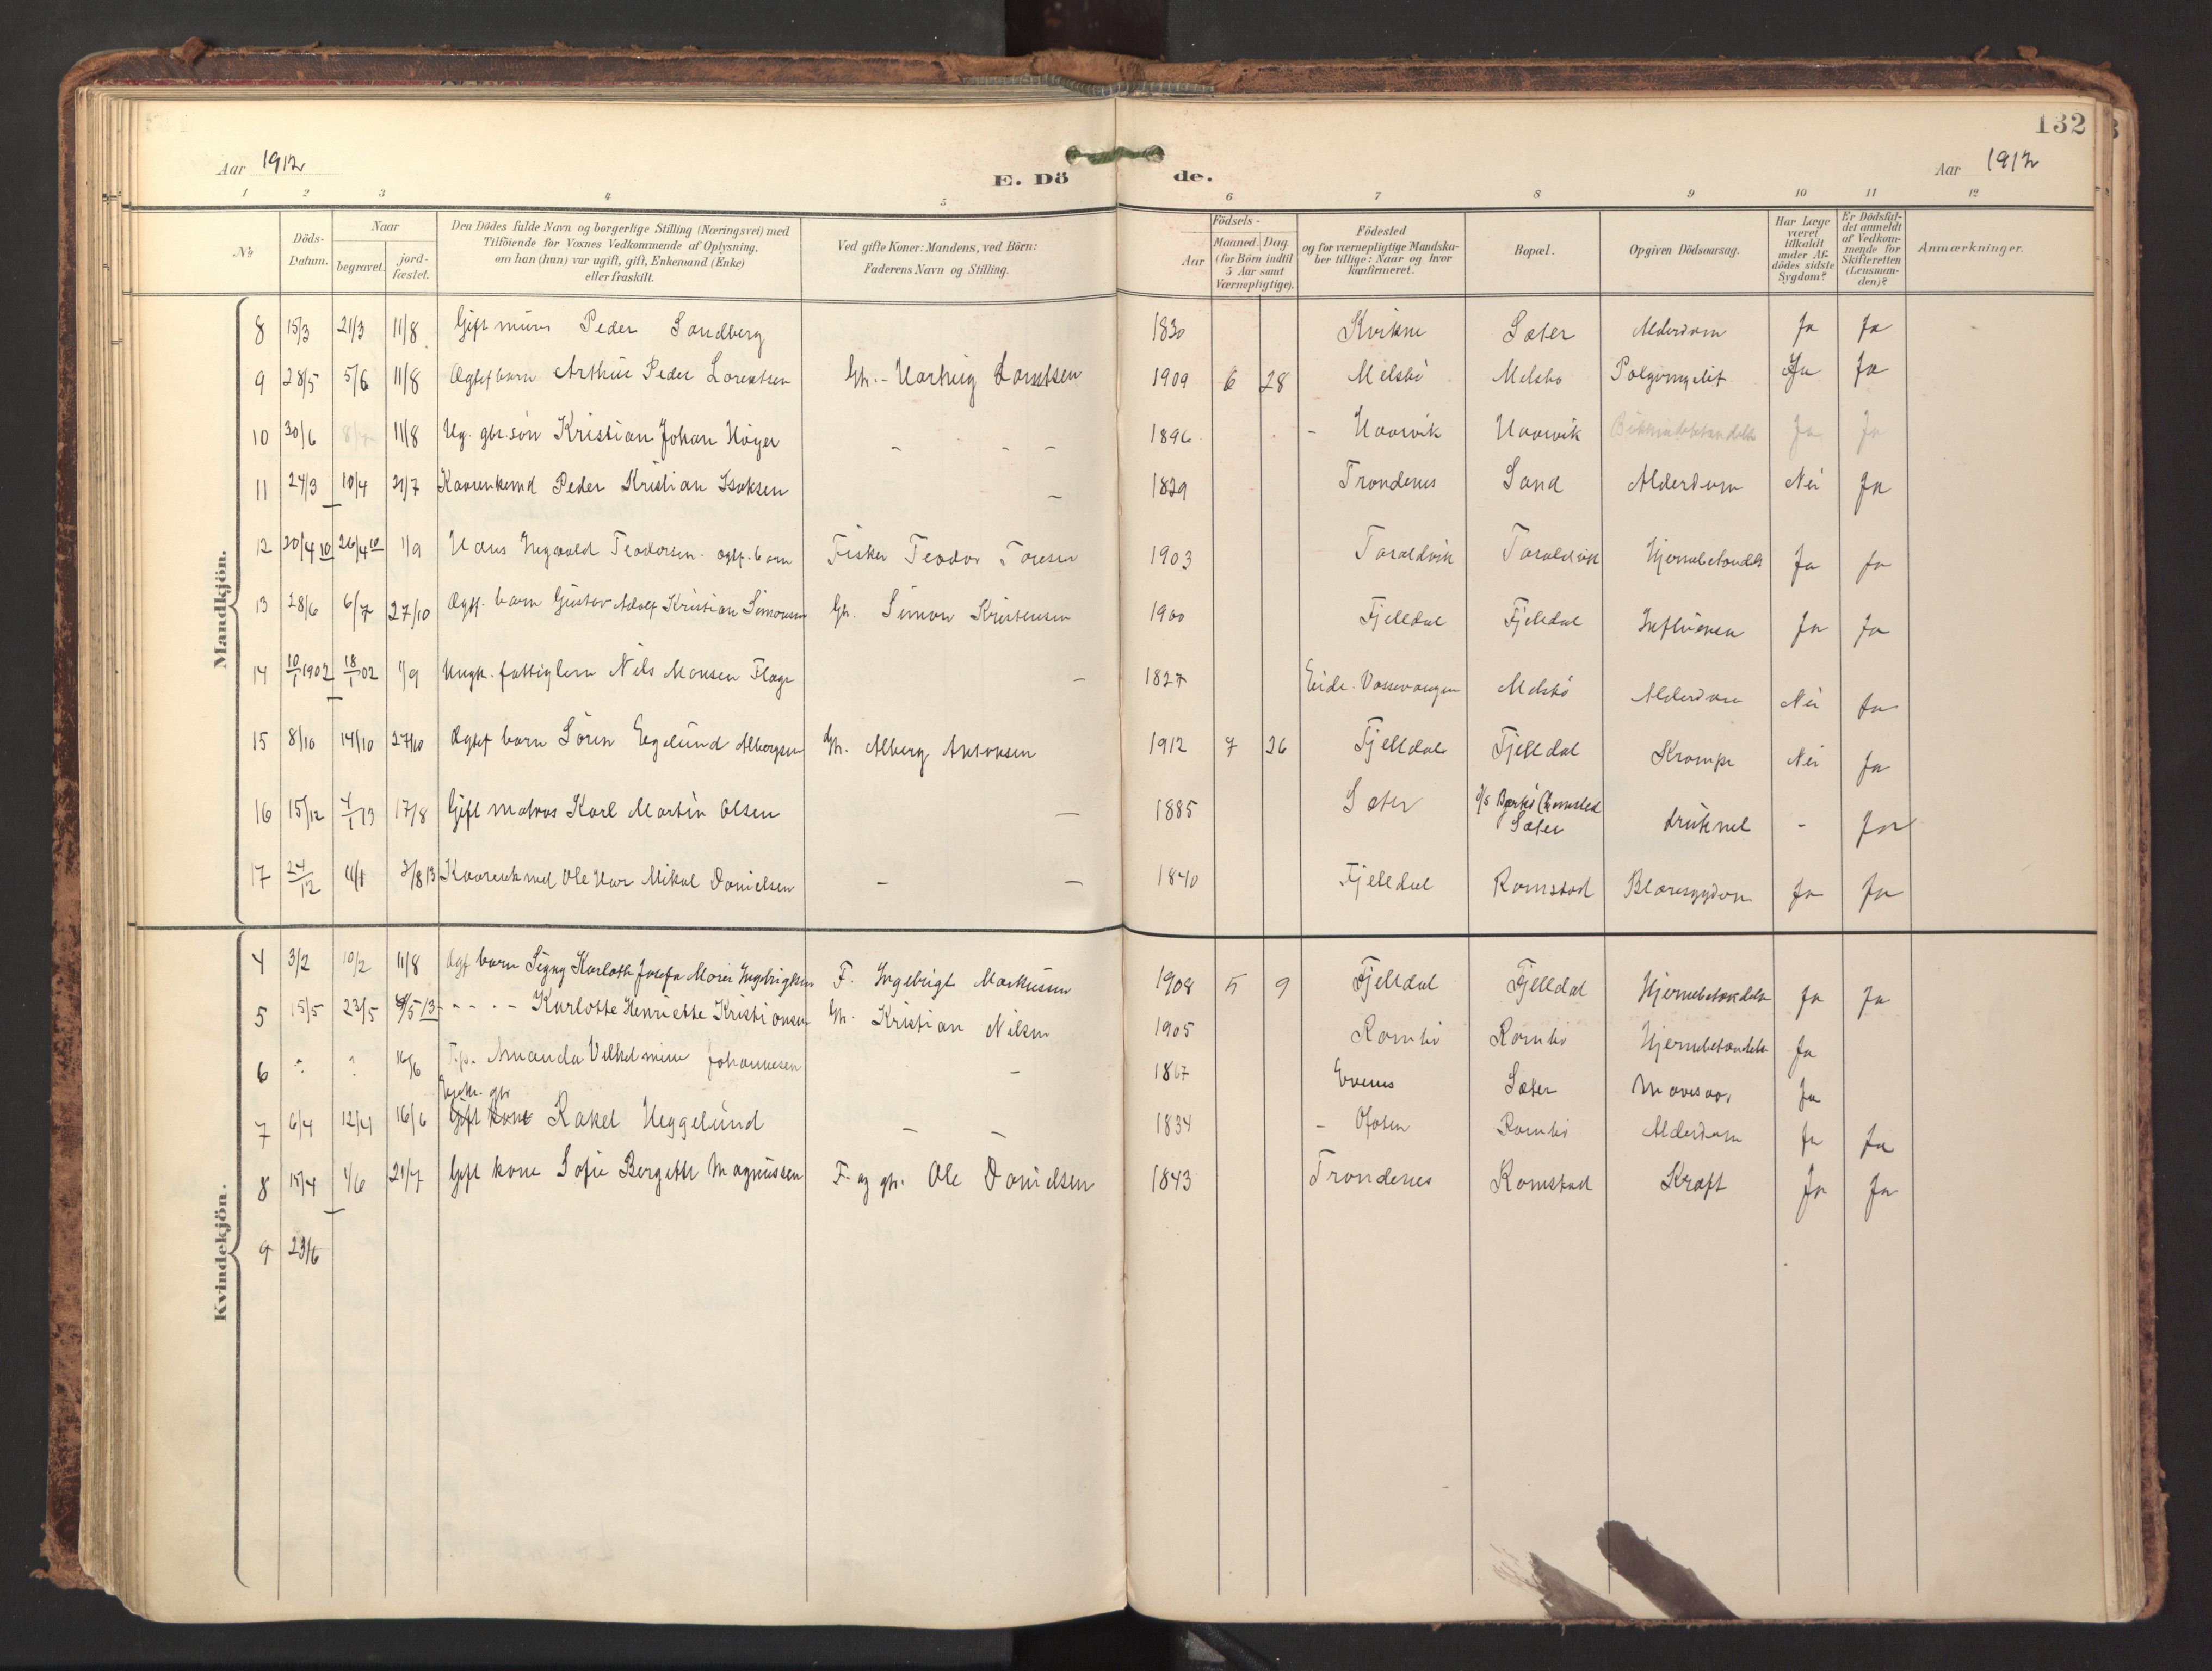 132
Aar 1912
E. Döde.
Aar 1912
1 2 3 4 5 6 7 8 9 10 11 12
No
Döds-Datum.
Naar
begravet.
jord-fæstet.
Den Dödes fulde Navn og borgerlige Stilling (Næringsvei) med
Tilföiende for Voxnes Vedkommende af Oplysning,
om han (hun) var ugift, gift, Enkemand (Enke)
eller fraskilt.
Ved gifte Koner: Mandens, ved Börn:
Faderens Navn og Stilling.
Födsels-
Aar
Maaned. Dag.
(for Börn indtil
5 Aar samt
Værnepligtige).
Födested
og for værnepligtige Mandska-
ber tillige: Naar og hvor
konfirmeret.
Bopæl.
Opgiven Dödsaarsag.
Har Læge
været
tilkaldt
under Af-
dödes sidste
Sygdom?
Er Dödsfal-
det anmeldt
af Vedkom-
mende for
Skifteretten
(Lensman-
den)?
Anmærkninger.
Mandkjön.
8 15/3 21/3 11/8 Gift murer Peder Sandberg 1830 Kvikne Sæter Alderdom Ja Ja
9 28/5 5/6 11/8 Ægtef barn Arthur Peder Lorentsen Gbr. - Hartvig Lorentsen 1909 6 28 Melsbö Melsbo Ja Ja
10 30/6 11/8 Ug. gbr. sön Kristian Johan Höyer - - - 1896 - Haavik Haavik Ja Ja
11 24/3 10/4 21/7 Kaarenkemd Peder Kristian Isaksen - 1829 Trondenes Sand Alderdom Nei Ja
12 20/4 10 26/4 10 1/9 Hans Ingvald Teodorsen. ægtf. barn Fisker Teodor Toresen 1903 Taraldvik Taraldvik Hjernebetændels Ja Ja
13 28/6 6/7 27/10 Ægtf. barn Gustav Adolf Kristian Simonsen Gbr. Simon Kristensen 1900 Fjelldal Fjelldal Influensa Ja Ja
14 10/1 1902 18/1 02 1/9 Ungk. fattiglem Nils Monsen Flage - 1827 Eide. Vossevangen Melsbö Alderdom Nei Ja
15 8/10 14/10 27/10 Ægtef barn Sören Egelund Albergsen Gbr. Alberg Antonsen 1912 7 26 Fjelldal Fjelldal Krampe Nei Ja
16 15/12 4/1 13 17/8 Gift matros Karl Martin Olsen - 1885 Sæter
Sæter druknet - Ja
17 24/12 11/1 3/8 13 Mikal Danielsen - - 1840 Fjelldal Ramstad Blæresygdom Ja Ja
Kvindekjön.
4 3/2 10/2 11/8 Ægf barn Signy Karlotte Josefa Marie Ingebrigtsen F. Ingebrigt Markussen 1908 5 9 Fjelldal Fjelldal Hjernebetændelse Ja Ja
5 15/5 23/5 4/5 13 - - - - Karlotte Henriette Kristiansen Gbr. Kristian Nilsen 1905 Rambö Rambö Hjernebetændels Ja
6 ? ? 16/6 Amanda Vilhelmine Johannesen - 1867 Evenes Sæter Mavesaar Ja
Enke. gbr
7 6/4 12/4 16/6 Gift kone Rakel Heggelund - - 1834 - Ofoten Rambö Alderdom Ja Ja
8 15/4 1/6 21/7 Gift kone Sofie Bergette Magnussen F. og gbr. Ole Danielsen 1843 Trondenes Ramstad Kræft Ja Ja
9 23/6